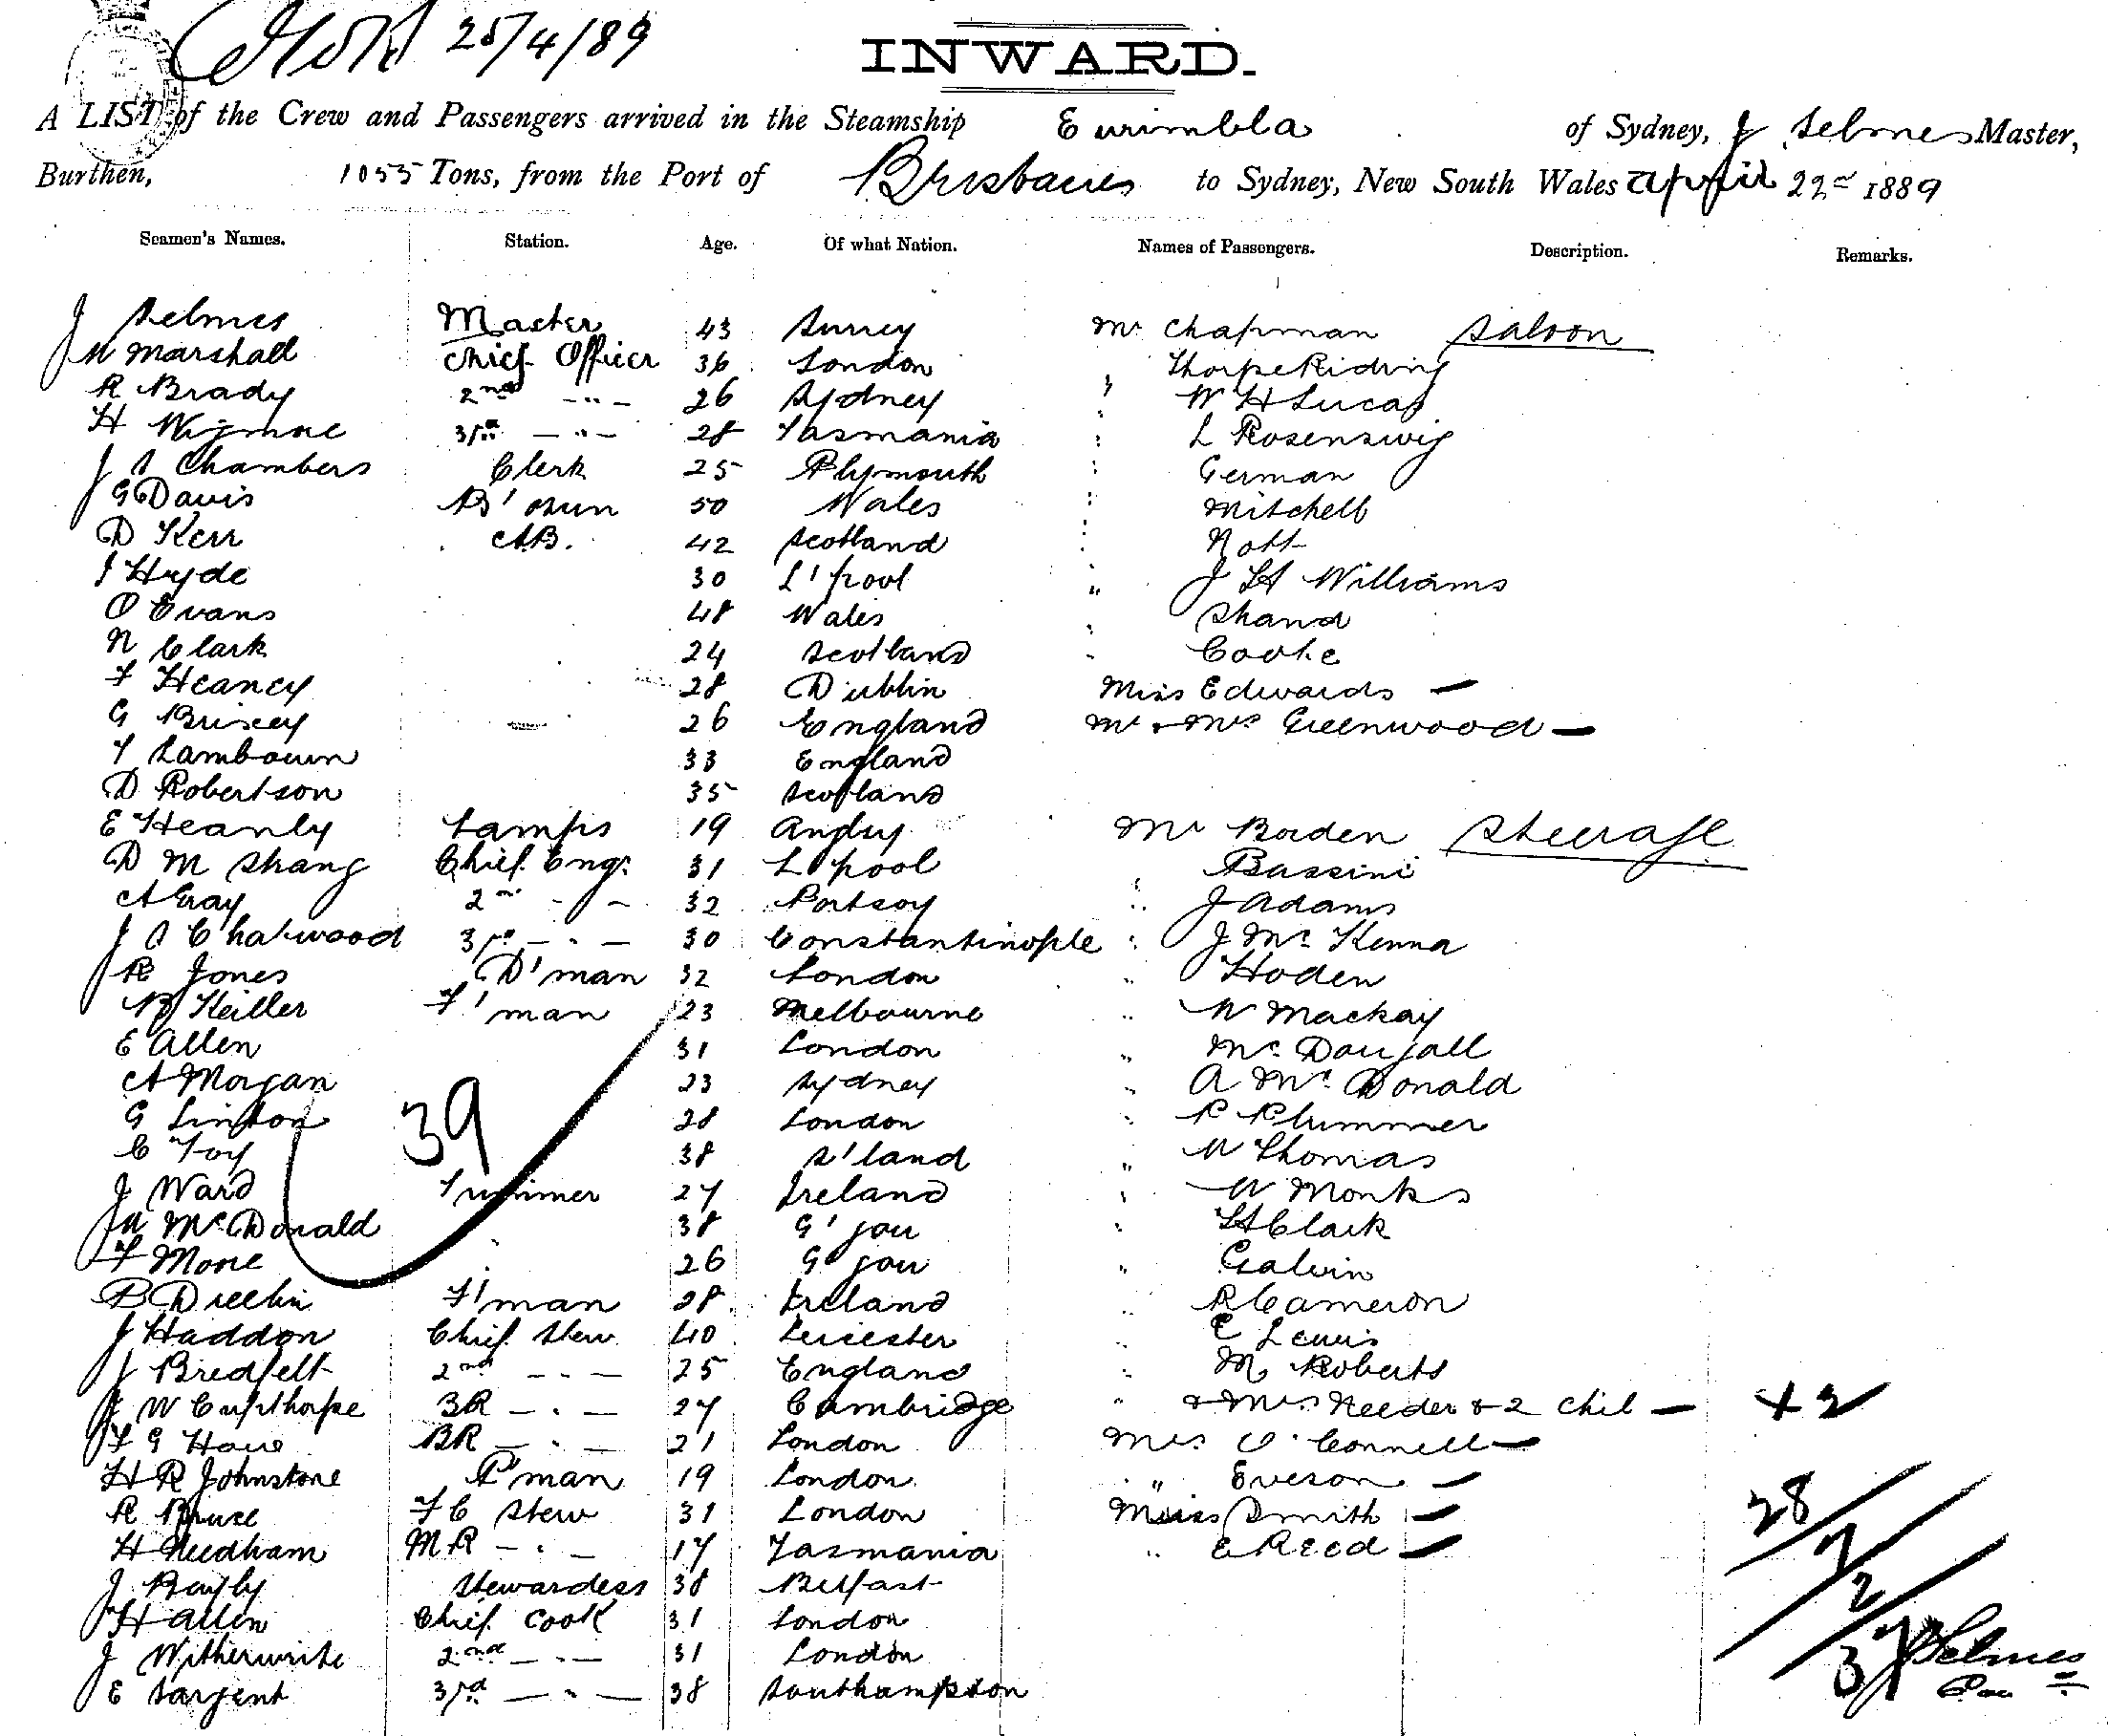 25/4/89
INWARD.
A LIST of the Crew and Passengers arrived in the Steamship Eurimbla of Sydney, J Selmes Master,
Burthen, 1055 Tons, from the Port of Brisbane to Sydney, New South Wales April 22nd 1889
Seamen's Names. Station. Age. Of what Nation. Names of Passengers. Description. Remarks.
J Selmes Master 43 Surrey Mr Chapman Saloon
J M Marshall Chief Officer 36 London " Thorpe Riding
R Brady 2nd -"- 26 Sydney " W H Lucas
H 3rd -"- 28 Tasmania " L Rosenswig
J A Chambers Clerk 25 Plymouth " German
J G Davis B'sun 50 Wales " Mitchell
D Kerr AB. 42 Scotland " Nott
J Hyde 30 L'pool " J H Williams
O Evans 48 Wales " Shand
N Clark 24 Scotland " Cooke
F Heaney 28 Dublin Miss Edwards —
G Brixey 26 England Mr & Mrs Greenwood —
T Lambourn 33 England
D Robertson 35 Scotland
E Heanly Lamps 19 Mr Borden Steerage
D M Shang Chief Engr. 31 L'pool " Bassini
A Gray 2nd -"- 32 Portsoy " J Adams
J A Chatwood 3rd -"- 30 Constantinople " J McKenna
R Jones D'man 32 London " Hoden
B Keiller F'man 23 Melbourne " W Mackay
E Allen 31 London " McDougall
A Morgan 23 Sydney " A McDonald
G Linton 39 28 London " P Plummer
C Foy 38 S'land " W Thomas
J Ward Trimmer 27 Ireland " W Monks
J M McDonald 38 G'gow " H Clark
F Mone 26 G'gow " Galvin
B F'man 28 Ireland " R Cameron
J Haddon Chief Stew 40 Leicester " E Lewis
J Bredfelt 2nd -"- 25 England " M Roberts
J W Calpthorpe BR -"- 27 Cambridge " & Mrs Reeder & 2 Chil — + 2
F G Howe BR -"- 21 London Mrs O'Connell —
H R Johnstone P'man 19 London " Everson —
R Bruce F C Stew 31 London Miss Smith —
H Needham MR -"- 17 Tasmania " E Reed —
J Bayly Stewardess 38 Belfast
H Allen Chief Cook 31 London
J Witherwrite 2nd -"- 31 London
E Sargent 3rd -"- 38 Southampton
28/7/2
37
J Selmes